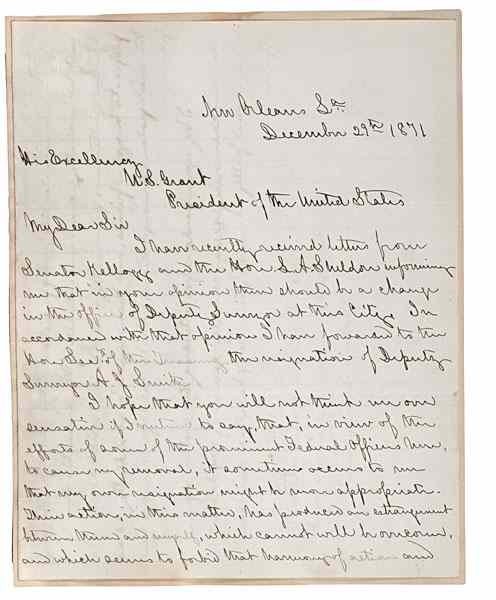 New Orleans La.
December 29th 1871
His Excellency
U.S. Grant
President of the United States
My Dear Sir
I have recently received letters from
Senator Kellogg and the Hon. L.A. Sheldon informing
me that in your opinion there should be a change
in the office of Deputy Surveyor at this City. In
accordance with that opinion I have forwarded to the
Hon. Sec. of the Treasury the resignation of Deputy
Surveyor A. J. Smith
I hope that you will not think me over
sensative if I venture to say, that, in view of the
efforts of some of the prominent Federal Officers here,
to cause my removal, it sometimes occurs to me
that my own resignation might be more appropriate.
Their action, in this matter, has produced an estrangement
between them and myself, which cannot well be overcome,
and which seems to forbid that harmony of action and